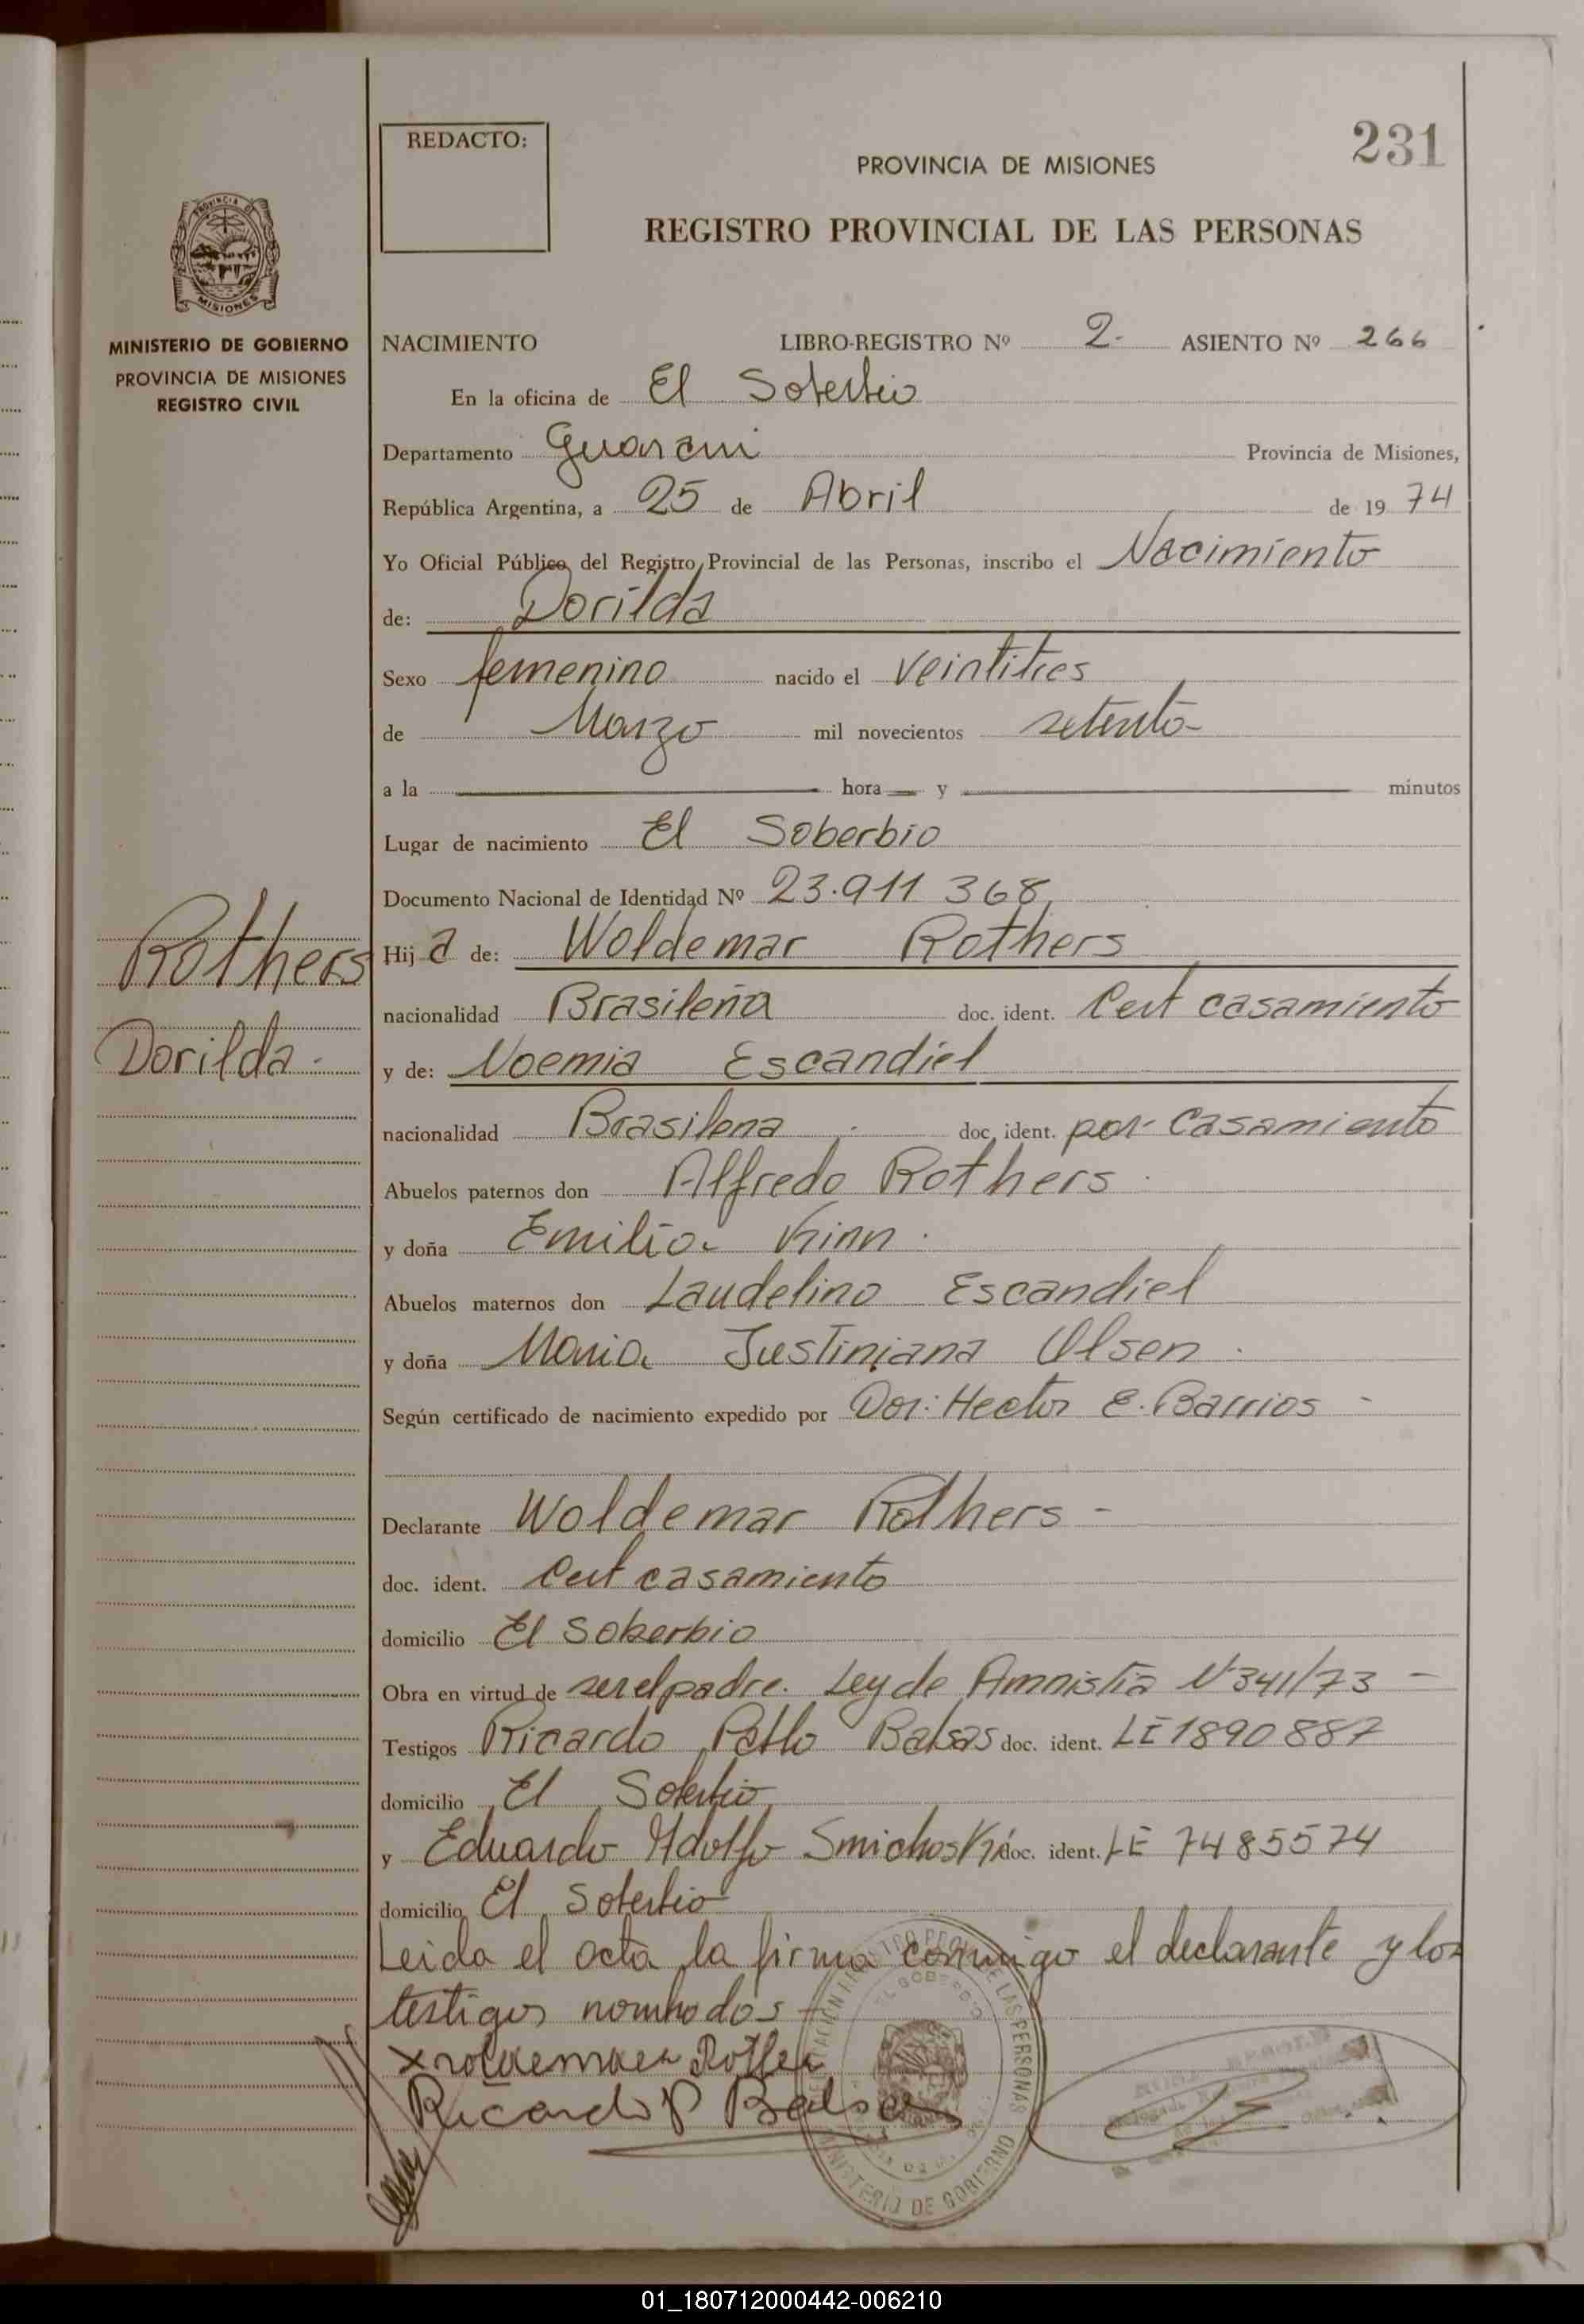 REDACTO:
231
PROVINCIA DE MISIONES
REGISTRO PROVINCIAL DE LAS PERSONAS
PROVINCIA DE
MISIONES
MINISTERIO DE GOBIERNO
PROVINCIA DE MISIONES
REGISTRO CIVIL
NACIMIENTO LIBRO-REGISTRO Nº 2- ASIENTO Nº 266
En la oficina de El Soberbio
Departamento Guarani Provincia de Misiones,
República Argentina, a 25 de Abril de 1974
Yo Oficial Público del Registro Provincial de las Personas, inscribo el Nacimiento
de: Dorilda
Sexo femenino nacido el veintitres
de Marzo mil novecientos setenta-
a la hora y minutos
Lugar de nacimiento El Soberbio
Documento Nacional de Identidad Nº 23.911 368
Rothers
Hija de: Woldemar Rothers
nacionalidad Brasileña doc. ident. Cert casamiento
Dorilda-
y de: Noemia Escandiel
nacionalidad Brasilena doc. ident. por casamiento
Abuelos paternos don Alfredo Rothers
y doña Emilia Kinn
Abuelos maternos don Laudelino Escandiel
y doña Maria Justiniana Olsen
Según certificado de nacimiento expedido por Dor: Hector E. Barrios -
Declarante Woldemar Rothers -
doc. ident. Cert casamiento
domicilio El Soberbio
Obra en virtud de ser el padre. Ley de Amnistia Nº 341/73 -
Testigos Ricardo Pablo Balsas doc. ident. LE 1890887
domicilio El Soberbio
y Eduardo Adolfo Smichoski doc. ident. LE 7485574
domicilio El Soberbio
Leida el acta la firma conmigo el declarante y los
testigos nombrados -
Ricardo P Balsas
EL SOBERBIO
LAS PERSONAS
MINISTERIO DE GOBIERNO
01_180712000442-006210